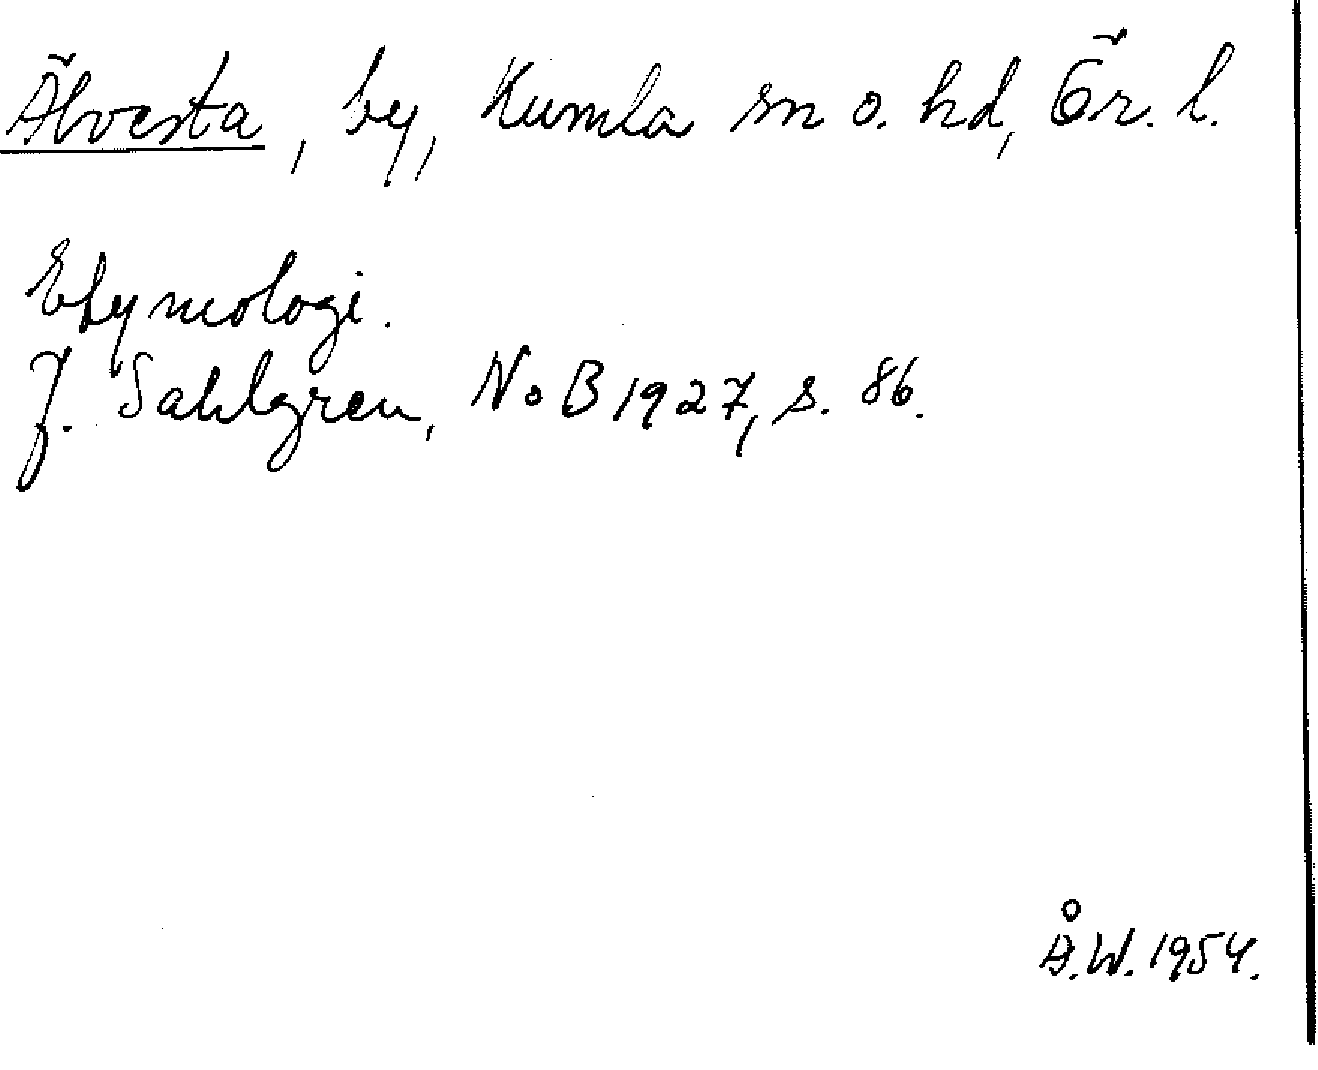 Älvesta, by, Kumla sn o. hd, Ör. l.
Etymologi.
J. Sahlgren, NoB 1927, s. 86.
Å.W. 1954.